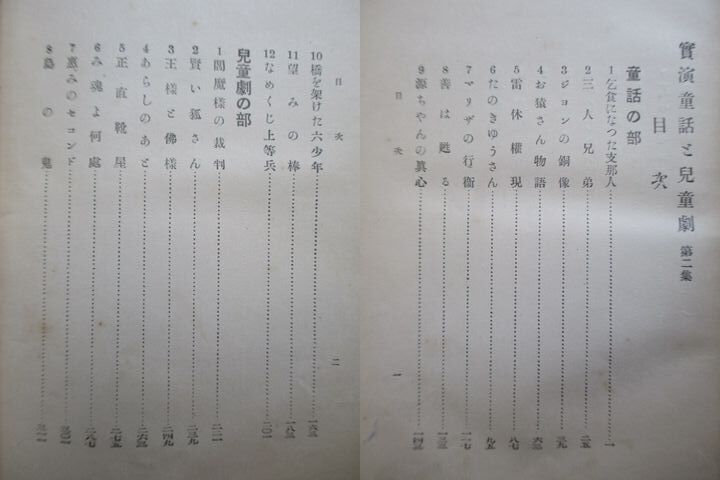 實演童話と兒童劇 第二集
目次
童話の部
1 乞食になつた支那人 一
2 三人兄弟 二五
3 ジヨンの銅像 三九
4 お猿さん物語 六三
5 雷休權現 八七
6 たのきゆうさん 九五
7 マリザの行衞 一一七
8 善は甦る
9 源ちやんの眞心 一四三
目次 一
10 橋を架けた六少年 一六三
11 望みの棒 一八三
12 なめくじ上等兵 二〇一
兒童劇の部
1 閻魔様の裁判 二二一
2 賢い狐さん 二三九
3 王様と佛様 二四九
4 あらしのあと 二六三
5 正直靴屋 二七五
6 み魂よ何處 二八七
7 惠みのセコンド 三〇一
8 島の鬼
目次 二